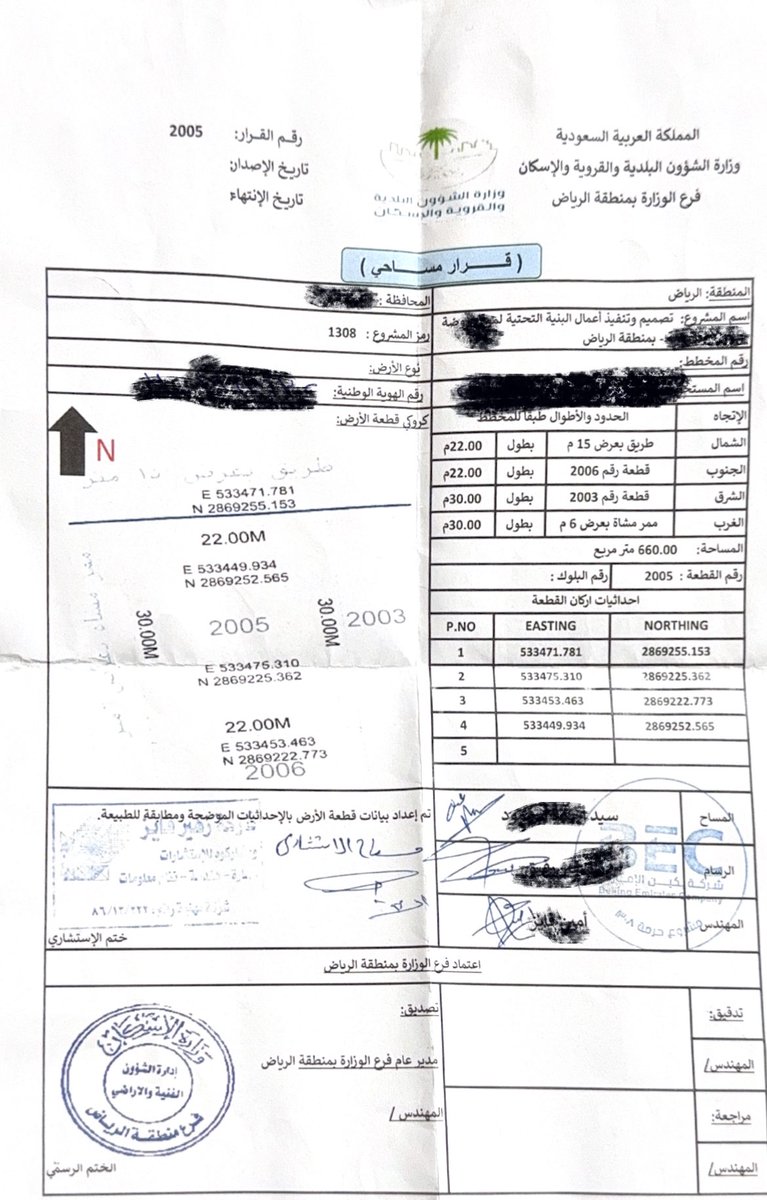 المملكة العربية السعودية
وزارة الشؤون البلدية والقروية والإسكان
فرع الوزارة بمنطقة الرياض
وزارة الشؤون البلدية
والقروية والإسكان
رقم القرار: 2005
تاريخ الإصدار:
تاريخ الإنتهاء
( قـــرار مســـاحي )
المنطقة: الرياض
المحافظة :
اسم المشروع: تصميم وتنفيذ أعمال البنية التحتية
- بمنطقة الرياض
رمز المشروع : 1308
رقم المخطط:
نوع الأرض:
اسم
رقم الهوية الوطنية:
الإتجاه الحدود والأطوال طبقا للمخطط
الشمال طريق بعرض 15 م بطول 22.00م
الجنوب قطعة رقم 2006 بطول 22.00م
الشرق قطعة رقم 2003 بطول 30.00م
الغرب ممر مشاة بعرض 6 م بطول 30.00م
المساحة: 660.00 متر مربع
رقم القطعة : 2005 رقم البلوك :
احداثيات اركان القطعة
P.NO EASTING NORTHING
1 533471.781 2869255.153
2 533475.310 2869225.362
3 533453.463 2869222.773
4 533449.934 2869252.565
5
كروكي قطعة الأرض:
N
طريق بعرض ١٥ متر
E 533471.781
N 2869255.153
22.00M
E 533449.934
N 2869252.565
30.00M
2005
30.00M
2003
E 533475.310
N 2869225.362
22.00M
E 533453.463
N 2869222.773
2006
المساح
الرسام
المهندس
BEC
تم إعداد بيانات قطعة الأرض بالإحداثيات الموضحة ومطابقة للطبيعة.
ختم الإستشاري
اعتماد فرع الوزارة بمنطقة الرياض
تدقيق:
المهندس/
مراجعة:
المهندس/
تصديق:
مدير عام فرع الوزارة بمنطقة الرياض
المهندس /
وزارة الإسكان
إدارة الشؤون
الفنية والاراضي
فرع منطقة الرياض
الختم الرسمي